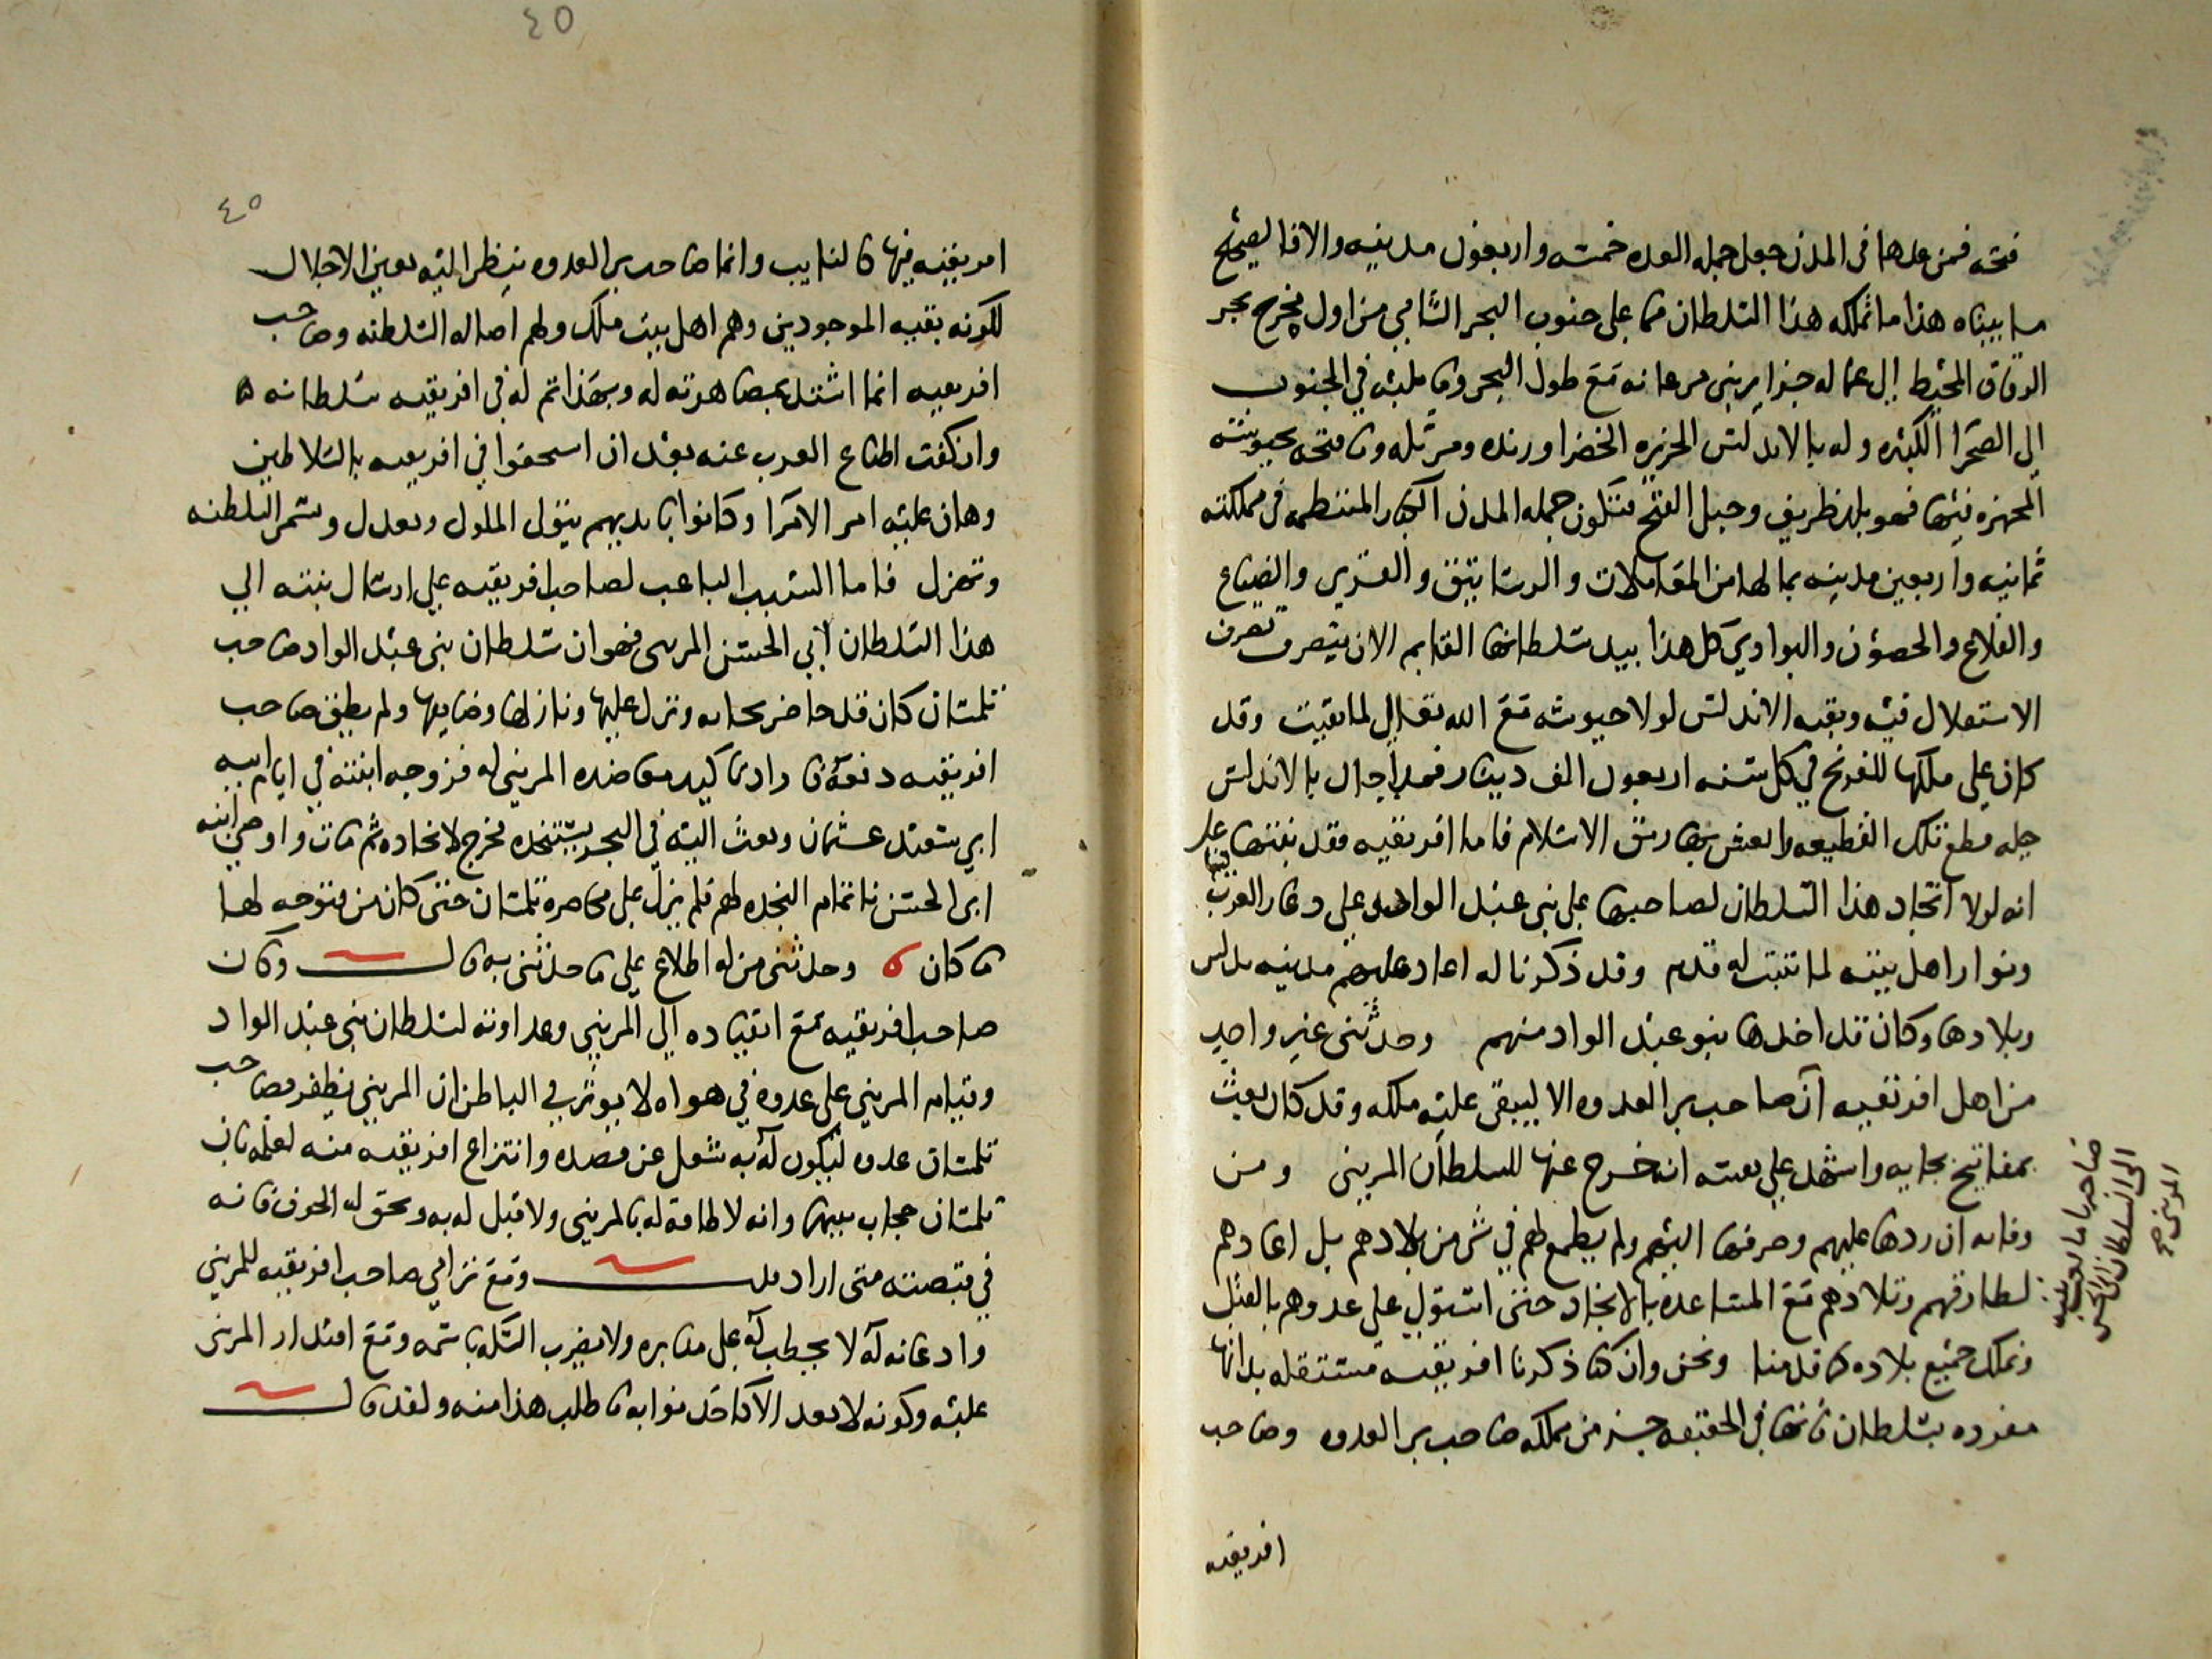 فتحه فمن عدها فى المدن جعل جمله العده خمسه واربعون مدينه والاقا لصحح
ما بيناه هذا ما تملكه هذا السلطان مما على جنوب البحر الشامي من اول مخرج بحر
الزقاق المحيط الى عماله جزاير بنى مزعانه مع طول البحر وما يليه في الجنوب
الى الصحرا الكبيره وله بالاندلس الجزيره الخضرا ورنده ومربله وما فتحه بجيوشه
المجهزه فيها فهو بلد طريف وجبل الفتح فتكون جمله المدن الكبار المنتظمه فى مملكته
ثمانيه واربعين مدينه بما لها من المعاملات والرساتيق والقرى والضياع
والقلاع والحصون والبوادي كل هذا بيد سلطانها القايم الان يتصرف تصرف
الاستقلال فيه وبقيه الاندلس لولا جيوشه مع الله تعالى لما بقيت وقد
كان على ملكها للفرنج في كل سنه اربعون الف دينار فمد اجال بالاندلس
جله قطع تلك القطيعه وانعش بها رمق الاسلام فاما افريقيه فقد بقتها على
انه لولا اتحاد هذا السلطان لصاحبها على بنى عبد الواد وعلى دعار العرب فيها
وثوار اهل بيته لما تثبت له قدم وقد ذكرنا له اعاد عليهم مدينه تدلس
وبلادها وكان قد اخذها بنو عبد الواد منهم وحدثنى غير واحد
من اهل افريقيه ان صاحب بر العدوه الا ليبقى عليه ملكه وقد كان بعث
بمفاتيح بجايه واشهد على بعته انه خرج عنها للسلطان المرينى ومن
وفايه ان ردها عليهم وصرفها اليهم ولم يطمع لهم في شى من بلادهم بل اعادهم
لطارفهم وتلادهم مع المساعده بالانجاد حتى استولى على عدوهم بالغلب
وتملك جميع بلاده كما قدمنا ونحن وان كنا ذكرنا افريقيه مستقله بذاتها
مفرده بسلطان فانها فى الحقيقه جزء من مملكه صاحب بر العدوه وصاحب
افريقيه
صاحبها
الى السلطان ابى الحسن
المرينى صح
٤٥
٤٥
افريقيه فيها كالنايب وانما صاحب بر العدوه ينظر اليه بعين الاجلال
لكونه بقيه الموجودين وهم اهل بيت ملك ولهم اصاله السلطنه وصاحب
افريقيه انما اشتد بمصاهرته له وبهذا تم له في افريقيه سلطانه
وانكفت اطماع العرب عنه بعد ان استخفوا في افريقيه بالسلاطين
وهان عليه امر الامرا وكانوا بايديهم يتولى الملوك وتعدل وتثمر السلطنه
وتهزل فاما السبب الباعث لصاحب افريقيه على ارسال بنته الى
هذا السلطان ابي الحسن المرينى فهو ان سلطان بنى عبد الواد صاحب
تلمسان كان قد حاضر بجايه ونزل عليها ونازلها وضايقها ولم يطق صاحب
افريقيه دفعه فارادى كيد معاضده المريني له فزوجه ابنته في ايام ابيه
ابي سعيد عثمان وبعث اليه في البحر يستنجده فخرج لانجاده ثم مات واوصى ابنه
ابى الحسن باتمام النجده لهم فلم يزل على محاصره تلمسان حتى كان من فتوحه لها
ما كان وحدثنى من له اطلاع على ما حدثنى به قال وكان
صاحب افريقيه مع انقياده الى المريني وعداوته لسلطان بنى عبد الواد
وقيام المريني على عدوه في هواه لا يوثر في الباطن ان المريني يظفر بصاحب
تلمسان عدوه ليكون له به شغل عن قصده وانتزاع افريقيه منه لعلمه بان
تلمسان حجاب بينها وانه لا طاقه له بالمرينى ولا قبل له به وتحقق له الخوف فانه
في قبضته متى اراد قال ومع ترامي صاحب افريقيه للمرينى
وادعانه له لا يخطب له على منابره ولا يضرب السكه باسمه ومع اقتدار المرينى
عليه وكونه لا يعد الا كاحد نوابه ما طلب هذا منه ولقد قال